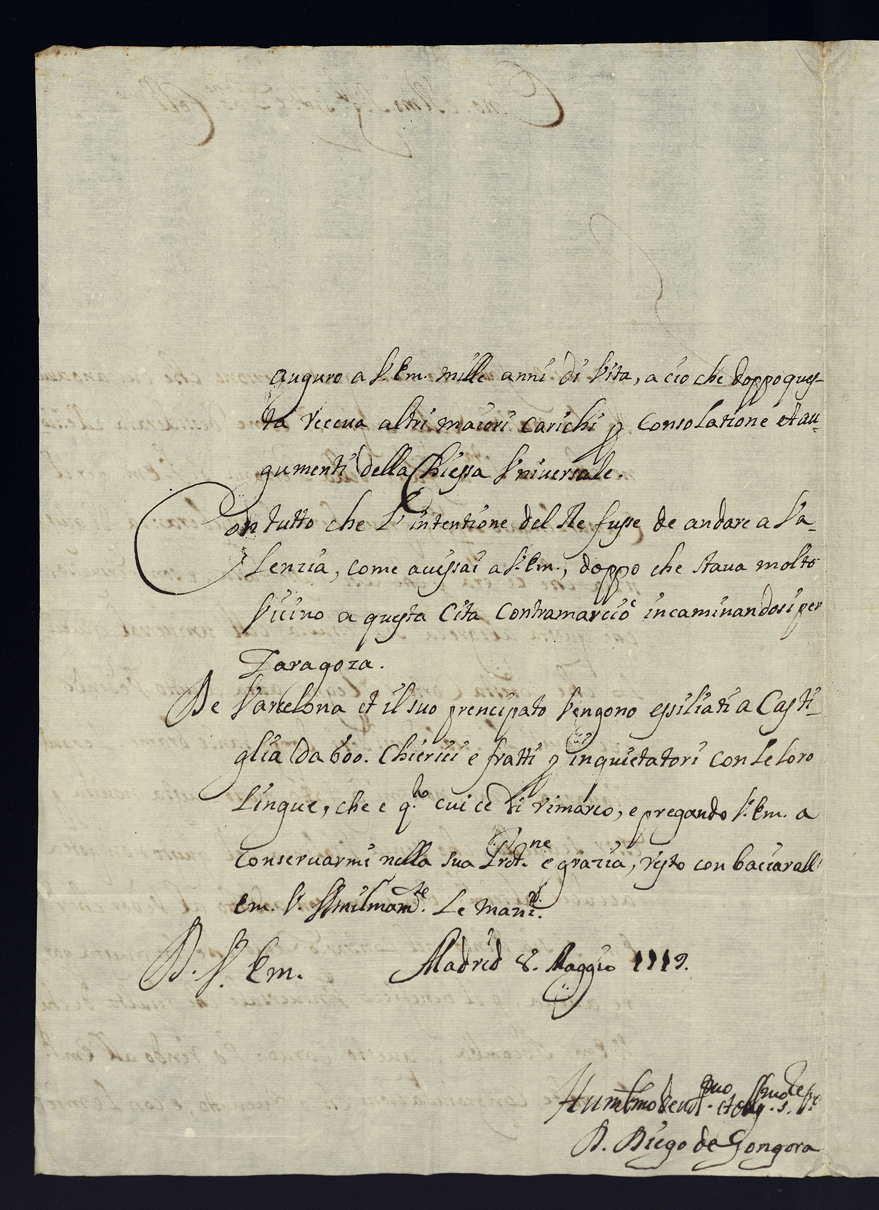 auguro a V. Em. mille anni di Vita, a cio che doppo ques-
ta riceva altri maiori carichi p consolatione et au-
gumenti della Chiessa Universale.
Con tutto che l'intentione del Re fusse de andare a Va-
lenzia, come avissai a V. Em., doppo che stava molto
vicino a questa Cita Contramarciò incaminandosi per
Zaragoza.
De Varelona et il suo prencipato vengono essiliati a Casti-
glia da 600. Chierici e fratti p inquietatori con le loro
lingue, che e q.to cui ce di rimarco, e pregando V. Em. a
conservarmi nella sua Prot.ne e grazia, resto con baciar all'
em. V. Hmilmam.te Le mani.
D. V. Em. Madrid 8. Maggio 1719.
Hum.mo devot. et obg. s.
D. Diego de Gongora